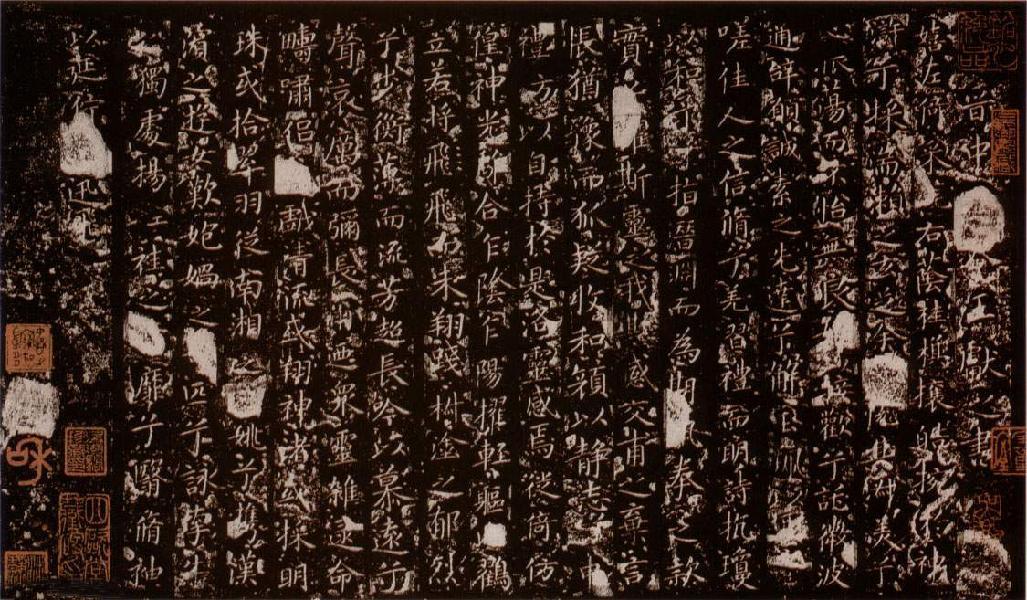 晉中王獻之書
嬉左倚采右蔭桂旗攘皓捥神
滸兮采湍瀨之玄芝余淑美兮
心振蕩而不怡無良接歡兮託微波
通辭願誠素之先達兮解玉
嗟佳人之信脩兮羌習禮而明詩抗瓊
以和予兮指潛淵而為期執拳之款
實斯靈之我感交甫之棄言
悵猶豫而狐疑收和顏以静志兮申
禮方以自持於是洛靈感焉徙倚仿
偟神光離合乍陰乍陽擢輕軀鶴
立若將飛飛而未翔踐椒塗之郁烈
兮步蘅薄而流芳超長吟以慕遠兮
聲哀厲而彌長爾乃眾靈雜遝命
疇嘯侶戲清流或翔神渚或採明
珠或拾翠羽從南湘之姚兮携漢
濱之遊女歎匏媧之匹兮詠牽牛
獨處揚輕袿之靡兮翳脩袖
以延佇迅飛